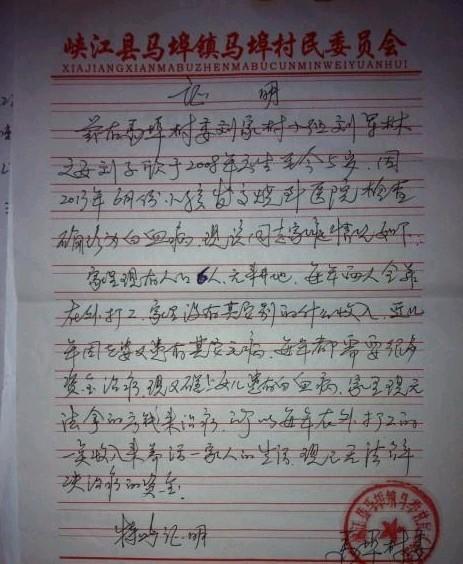 峡江县马埠镇马埠村民委员会
XIAJIANGXIANMABUZHENMABUCUNMINWEIYUANHUI
证 明
兹有马埠村委刘家村小组刘军林
之女刘子歆于2008年出生至今5岁.因
2013年6月份小孩发高烧到医院检查
确诊为白血病.现该同志家庭情况如下.
家里现有人口6人.无耕地.每年两人全靠
在外打工.家里没有其它别的什么收入.近几
年因老婆又患有其它之病.每年都需要很多
资金治疗.现又碰上女儿患有白血病.家里现无
法拿的方钱来治疗.所以每年在外打工的
一点收入来养活一家人的生活.现已无法解
决治疗的资金.
特此证明
马埠村委